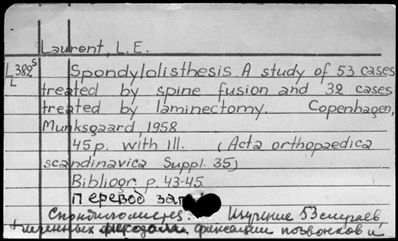 Laurent, L.E.
L382 s
L
Spondylolisthesis. A study of 53 cases
treated by spine fusion and 32 cases
treated by laminectomy. Copenhagen,
Munksgaard, 1958
45 p. with ill. (Acta orthopaedica
scandinavica Suppl. 35)
Bibliogr. p. 43-45
Перевод заг
Спондилолистез. Изучение 53 случаев,
фиксации позвонков и